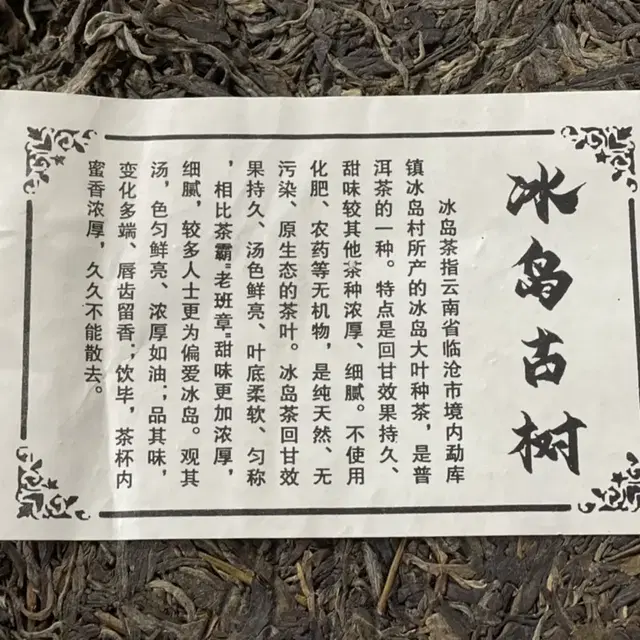 冰岛古树
冰岛茶指云南省临沧市境内勐库
镇冰岛村所产的冰岛大叶种茶，是普
洱茶的一种。特点是回甘效果持久、
甜味较其他茶种浓厚、细腻。不使用
化肥、农药等无机物，是纯天然、无
污染、原生态的茶叶。冰岛茶回甘效
果持久、汤色鲜亮、叶底柔软、匀称
，相比茶霸"老班章"甜味更加浓厚，
细腻，较多人士更为偏爱冰岛。观其
汤，色匀鲜亮、浓厚如油；品其味，
变化多端、唇齿留香；饮毕，茶杯内
蜜香浓厚，久久不能散去。